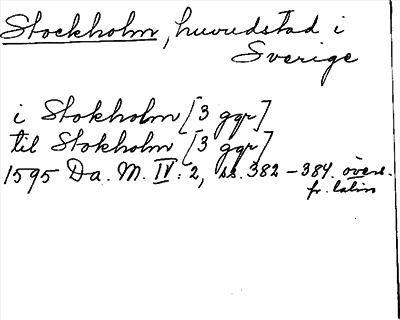 Stockholm, huvudstad i
Sverige
i Stokholm [3 ggr]
til Stokholm [3 ggr]
1595 Da. M. IV: 2, ss. 382-384. övers.
fr. latin